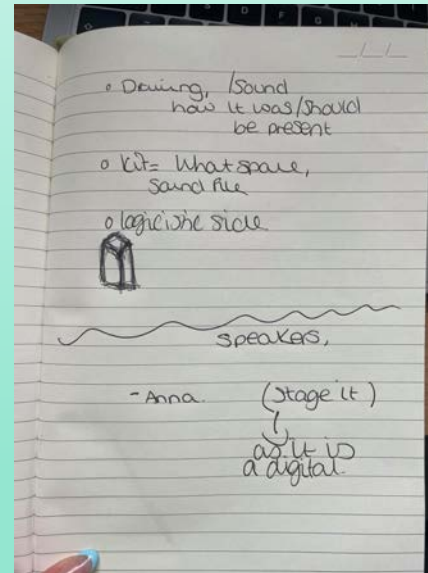 Sound
how it was/should
be present
Kit= What space,
Sound file
side
speakers,
-Anna. (Stage it)
as it is
a digital.